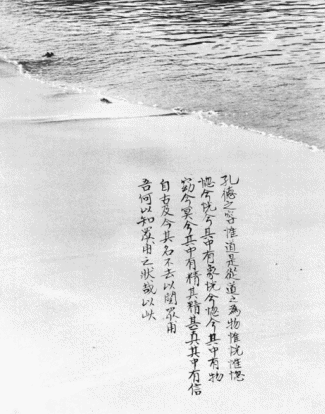 孔德之容惟道是從道之為物惟恍惟惚
惚兮恍兮其中有象恍兮惚兮其中有物
窈兮冥兮其中有精其精甚真其中有信
自古及今其名不去以閱眾甫
吾何以知眾甫之狀哉以此